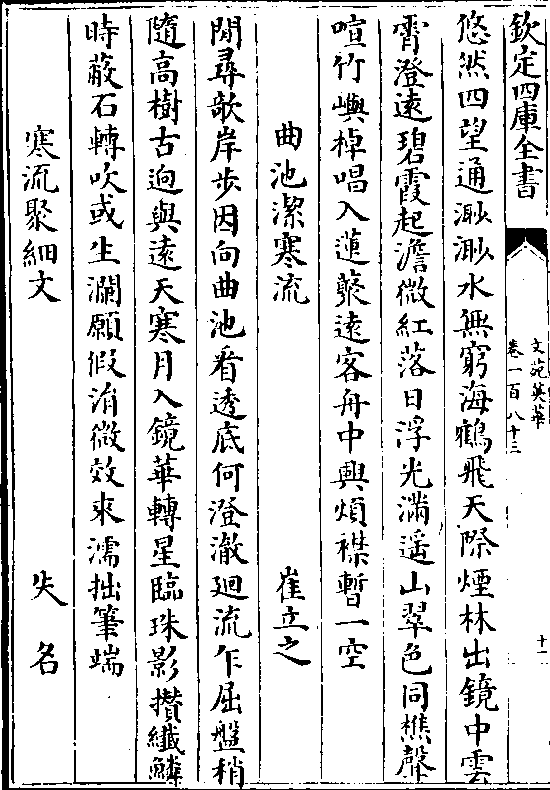 欽定四庫全書
文苑英華
卷一百八十三
十一
悠然四望通渺渺水無窮海鶴飛天際煙林出鏡中雲
霄澄遠碧霞起澹微紅落日浮光滿遥山翠色同樵聲
喧竹嶼棹唱入蓮藂遠客舟中興煩襟暫一空
曲池潔寒流 崔立之
閒尋欹岸步因向曲池看透底何澄澈廻流乍屈盤稍
隨高樹古逈與遠天寒月入鏡華轉星臨珠影攢纖鱗
時蔽石轉吹或生瀾願假涓微效來濡拙筆端
寒流聚細文 失名